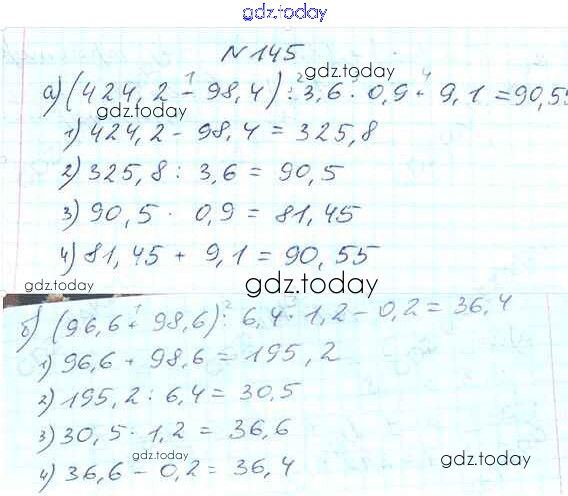 gdz.today
N 145
а) (424,2 - 98,4) : 3,6 · 0,9 + 9,1 = 90,55
gdz.today
gdz.today
1) 424,2 - 98,4 = 325,8
2) 325,8 : 3,6 = 90,5
3) 90,5 · 0,9 = 81,45
4) 81,45 + 9,1 = 90,55
gdz.today
gdz.today
б) (96,6 + 98,6) : 6,4 · 1,2 - 0,2 = 36,4
1) 96,6 + 98,6 = 195,2
2) 195,2 : 6,4 = 30,5
3) 30,5 · 1,2 = 36,6
4) 36,6 - 0,2 = 36,4
gdz.today
gdz.today